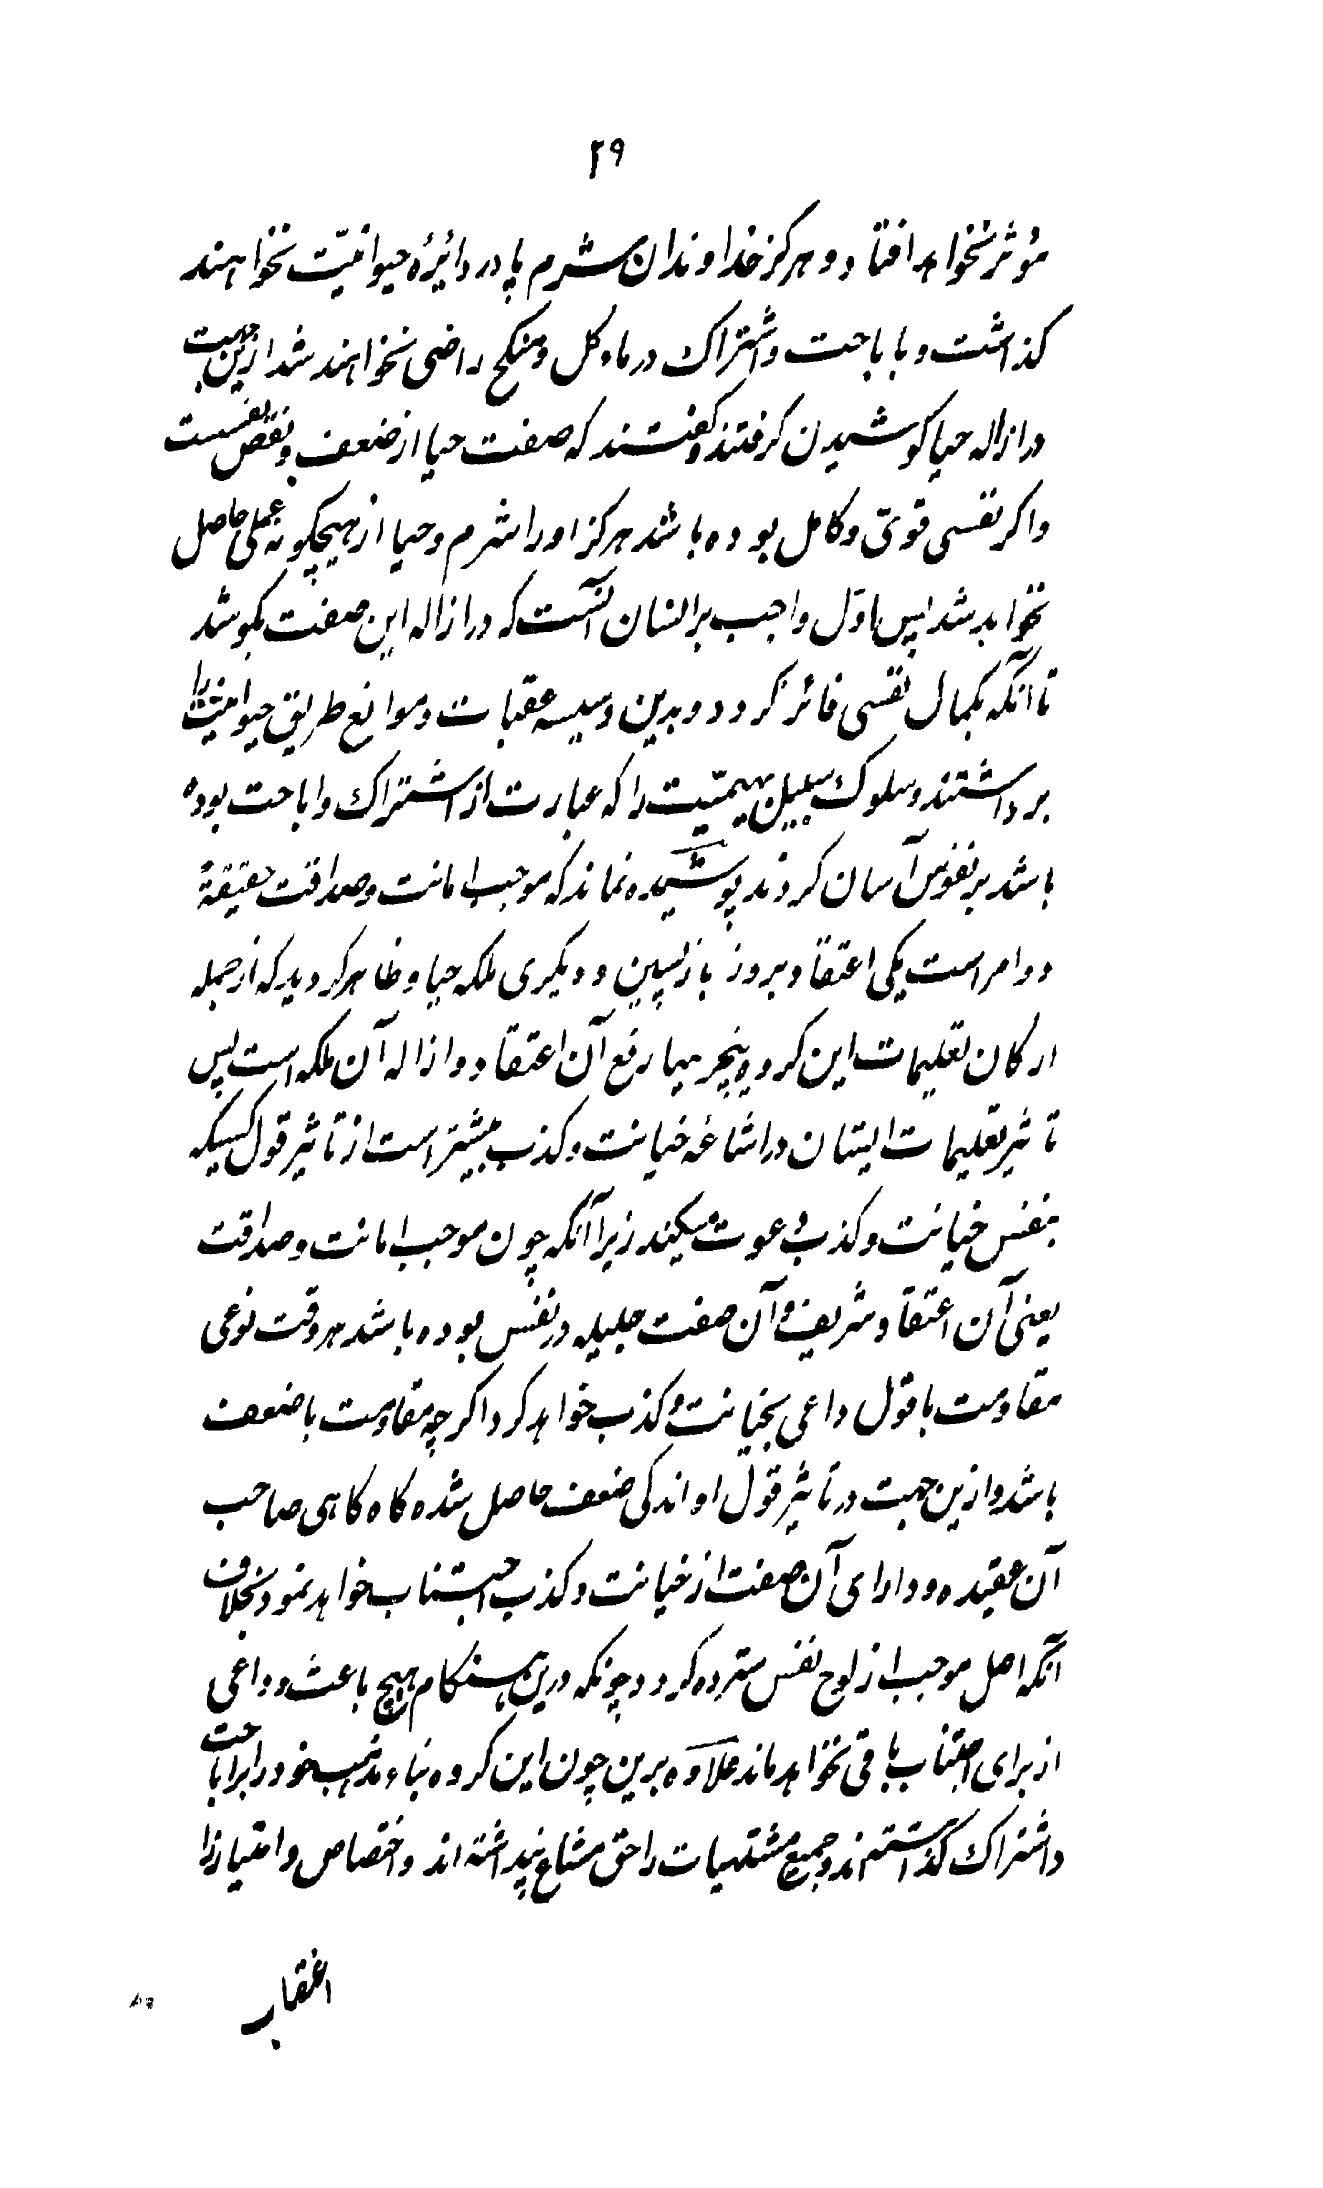 ۲۹
مؤثر نخواهد افتاد و هرکز خداوندان شرم پا در دائرهٔ حیوانیّت نخواهند
کذاشت و باباحت و اشتراک در ماکل و منکح راضی نخواهند شد ازین جهت
در ازاله حیا کوشیدن کرفتند و کفتند که صفت حیا از ضعف و نقص نفسست
و اکر نفسی قویّ و کامل بوده باشد هرکز او را شرم و حیا از هیچکونه عملی حاصل
نخواهد شد پس اوّل واجب بر انسان آنست که در ازاله این صفت بکوشد
تا آنکه بکمال نفسی فائز کردد و بدین وسیسه عقبات و موانع طریق حیوانیت را
برداشتند و سلوک سبیل بهیمیّت را که عبارت از اشتراک و اباحت بوده
باشد بر نفوس آسان کردند پوشیده نماند که موجب امانت و صداقت حقیقةً
دو امر است یکی اعتقاد بروز بازپسین و دیکری ملکه حیا و ظاهر کردید که از جمله
ارکان تعلیمات این کروه نیچریها رفع آن اعتقاد و ازاله آن ملکه است پس
تاثیر تعلیمات ایشان در اشاعه خیانت و کذب بیشتر است از تاثیر قول کسیکه
بنفس خیانت و کذب دعوت میکند زیرا آنکه چون موجب امانت و صداقت
یعنی آن اعتقاد شریف و آن صفت جلیله در نفس بوده باشد هر وقت نوعی
مقاومت با قول داعی بخیانت و کذب خواهد کرد اکرچه مقاومت با ضعف
باشد و ازین جهت در تاثیر قول او اندکی ضعف حاصل شده کاه کاهی صاحب
آن عقیده و دارای آن صفت از خیانت و کذب اجتناب خواهد نمود بخلاف
آنکه اصل موجب از لوح نفس سترده کردد چونکه درین هنکام هیچ باعث و داعی
از برای اجتناب باقی نخواهد ماند علاوه برین چون این کروه بناء مذهب خود را بر اباحت
و اشتراک کذاشتند و جمیع مشتهیات را حق مشاع پنداشته اند و اختصاص و امتیاز را
اغتقاب